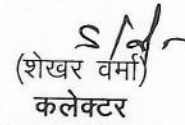 s/d-
(शेखर वर्मा)
कलेक्टर